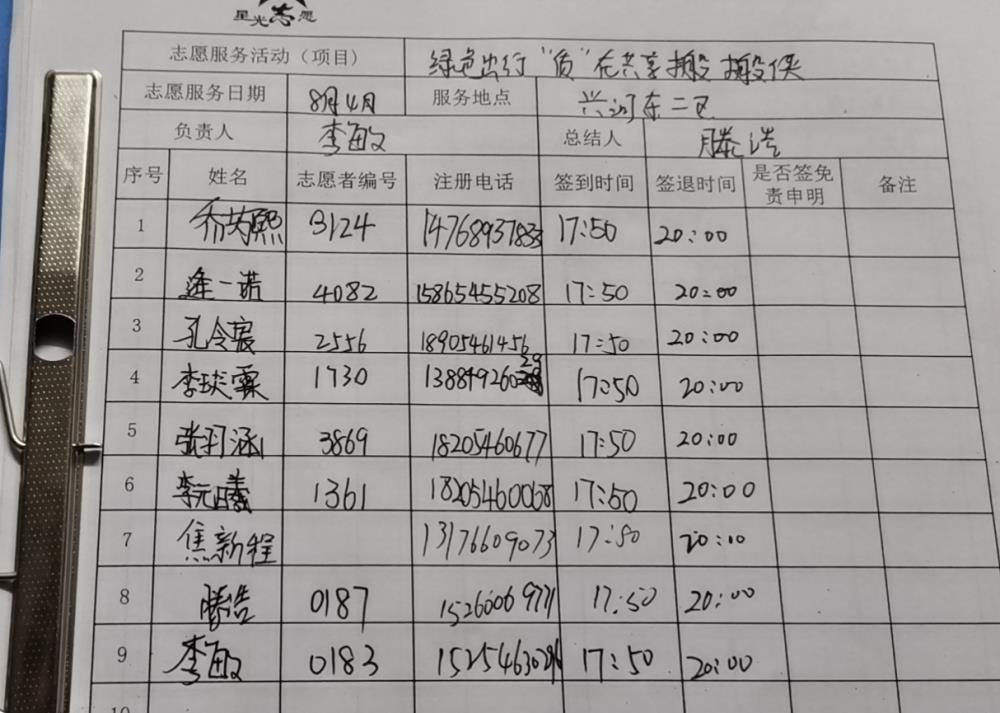 星光志愿
志愿服务活动（项目） 绿色出行“负”在共享 搬搬侠
志愿服务日期 8月4月 服务地点 兴河东二区
负责人 李敏 总结人 滕浩
序号 姓名 志愿者编号 注册电话 签到时间 签退时间 是否签免责申明 备注
1 乔芮熙 3124 14768937833 17:50 20:00
2 逄一诺 4082 15865455208 17:50 20:00
3 孔令宸 2556 18905461456 17:50 20:00
4 李琰霖 1730 17:50 20:00
5 张羽涵 3869 18205460677 17:50 20:00
6 李元曦 1361 18205460068 17:50 20:00
7 焦新程 13176609073 17:50 20:10
8 滕浩 0187 15260069771 17:50 20:00
9 李敏 0183 17:50 20:00
10